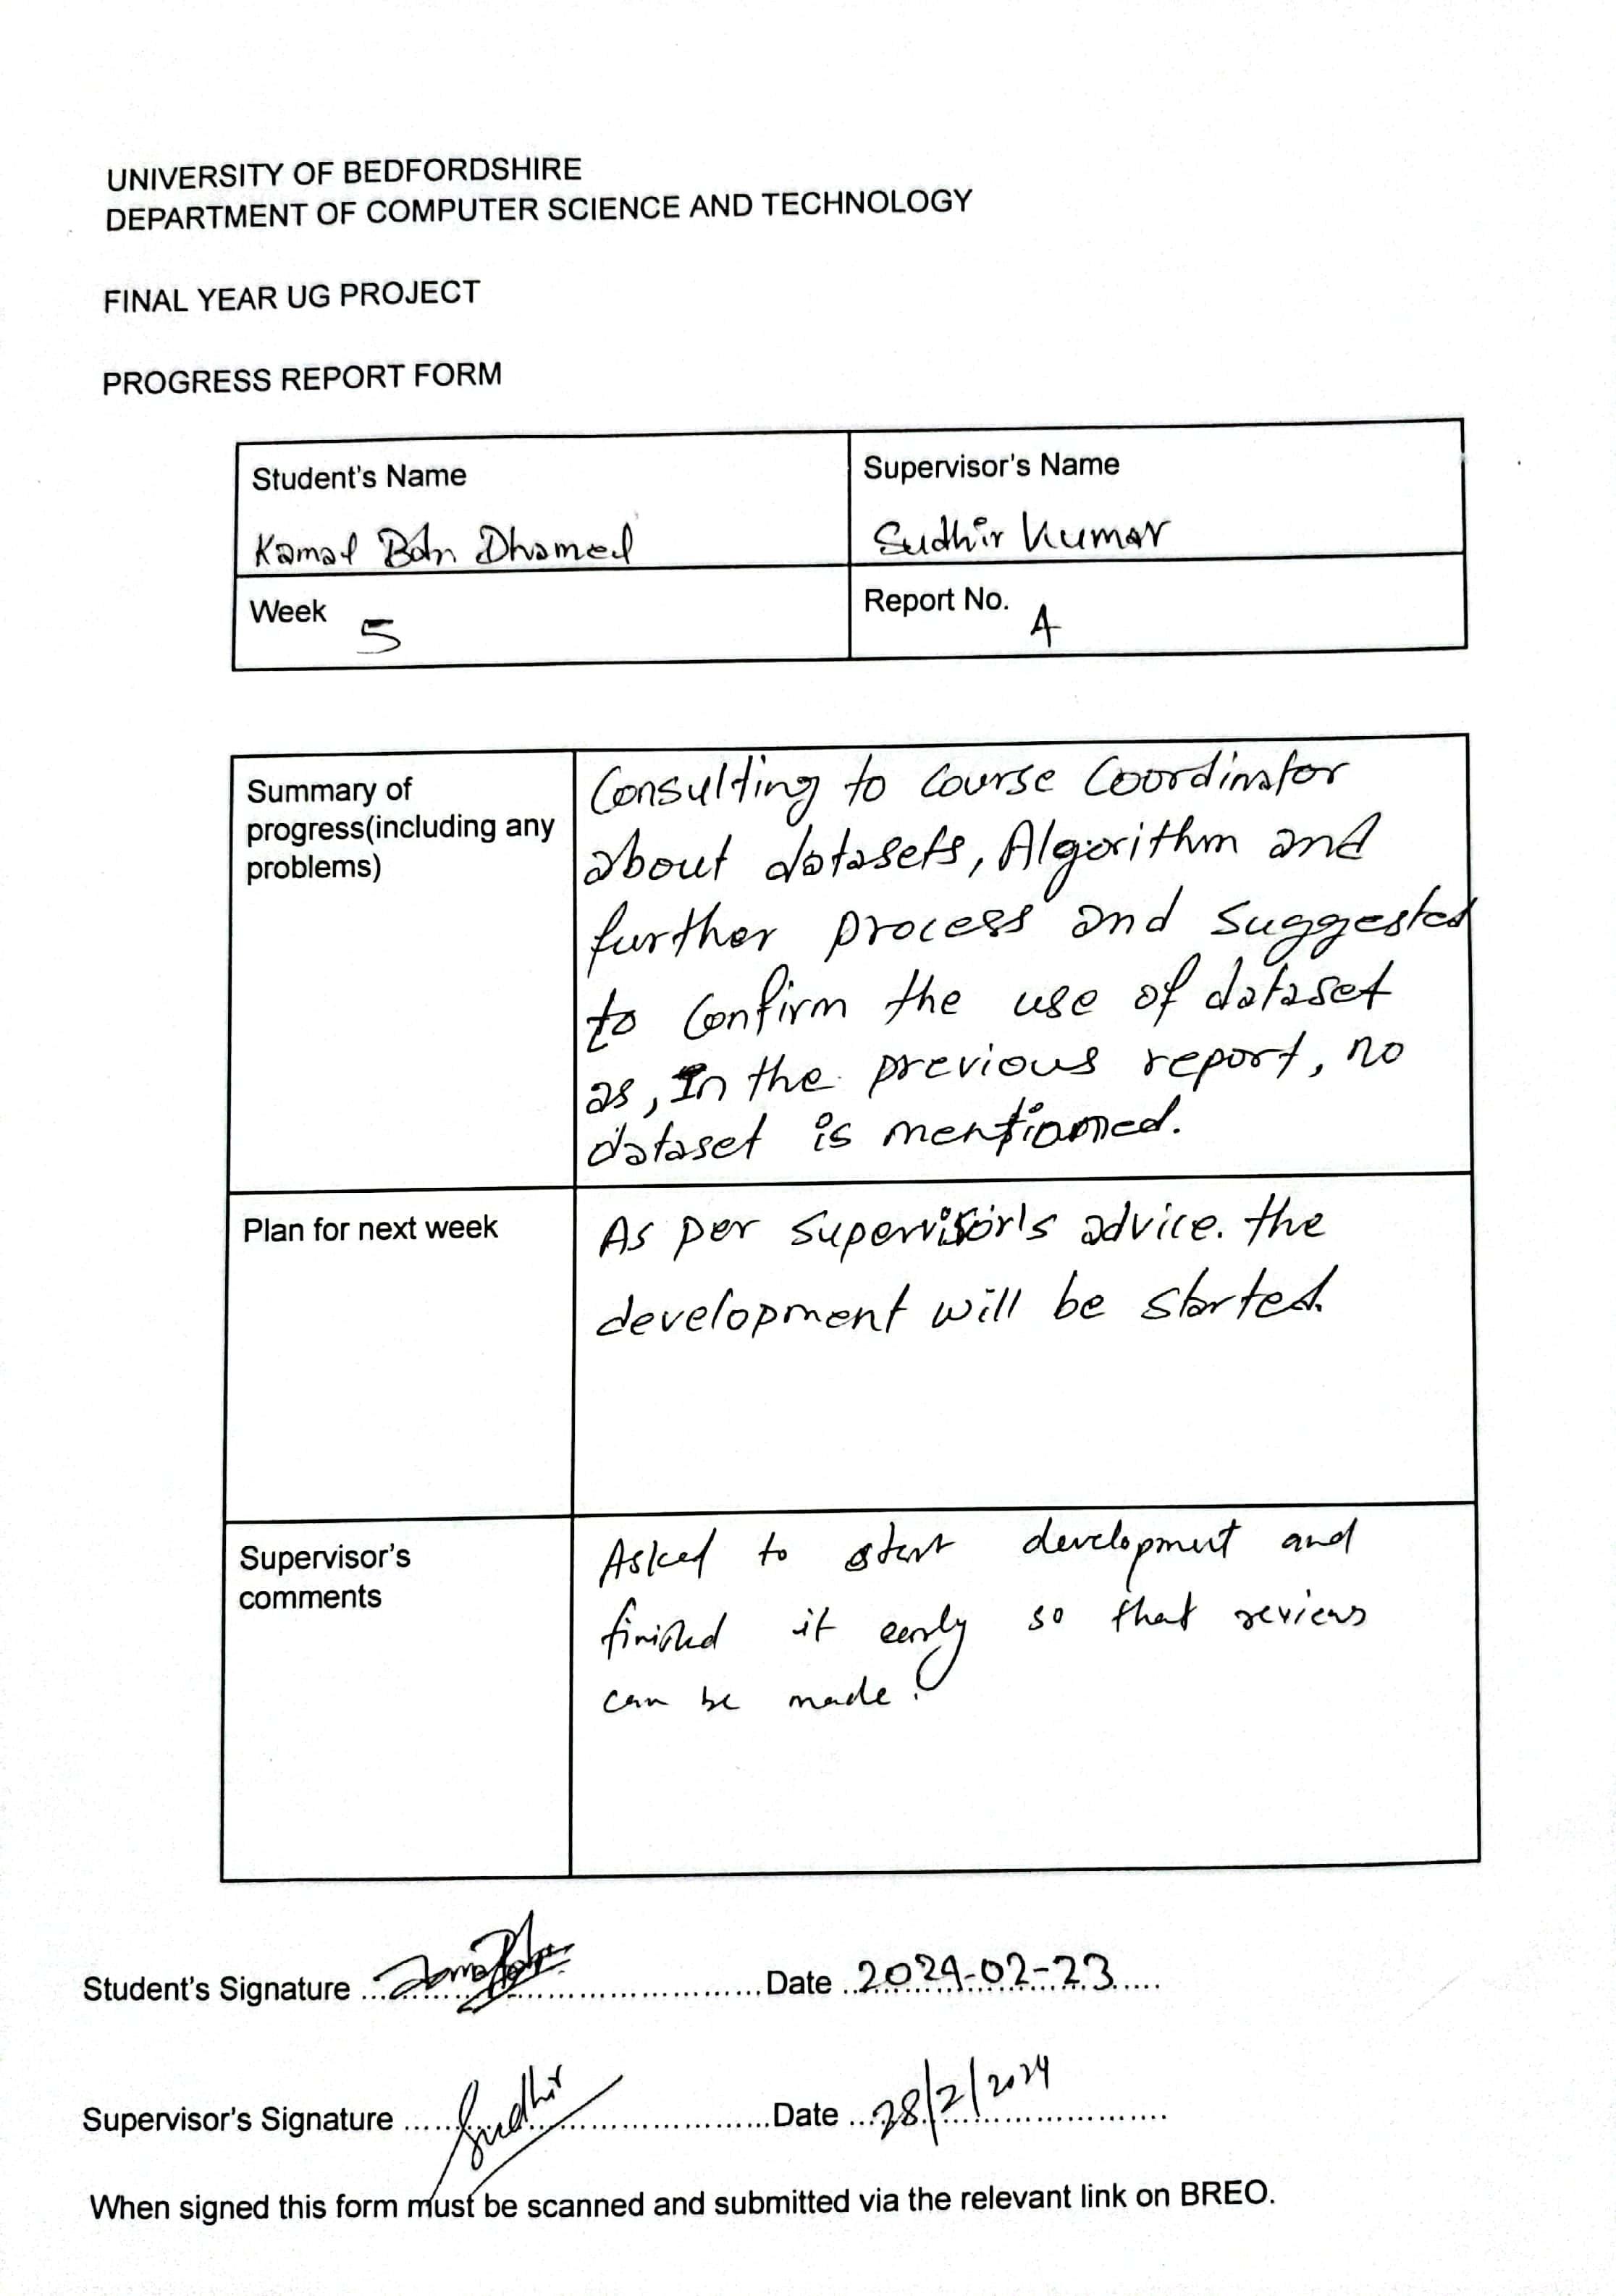 UNIVERSITY OF BEDFORDSHIRE
DEPARTMENT OF COMPUTER SCIENCE AND TECHNOLOGY
FINAL YEAR UG PROJECT
PROGRESS REPORT FORM
Student's Name
Kamal Bdn Dhamed
Supervisor's Name
Sudhir Kumar
Week 5
Report No. 4
Summary of
progress(including any
problems)
Consulting to Course Coordinator
about datasets, Algorithm and
further process and suggested
to Confirm the use of dataset
as, In the previous report, no
dataset is mentioned.
Plan for next week
As per supervisor's advice. the
development will be started.
Supervisor's
comments
Asked to start development and
finished it early so that reviews
can be made.
Student's Signature .......... Date 2024-02-23
Supervisor's Signature ..... Sudhir .......... Date 28/2/2024
When signed this form must be scanned and submitted via the relevant link on BREO.